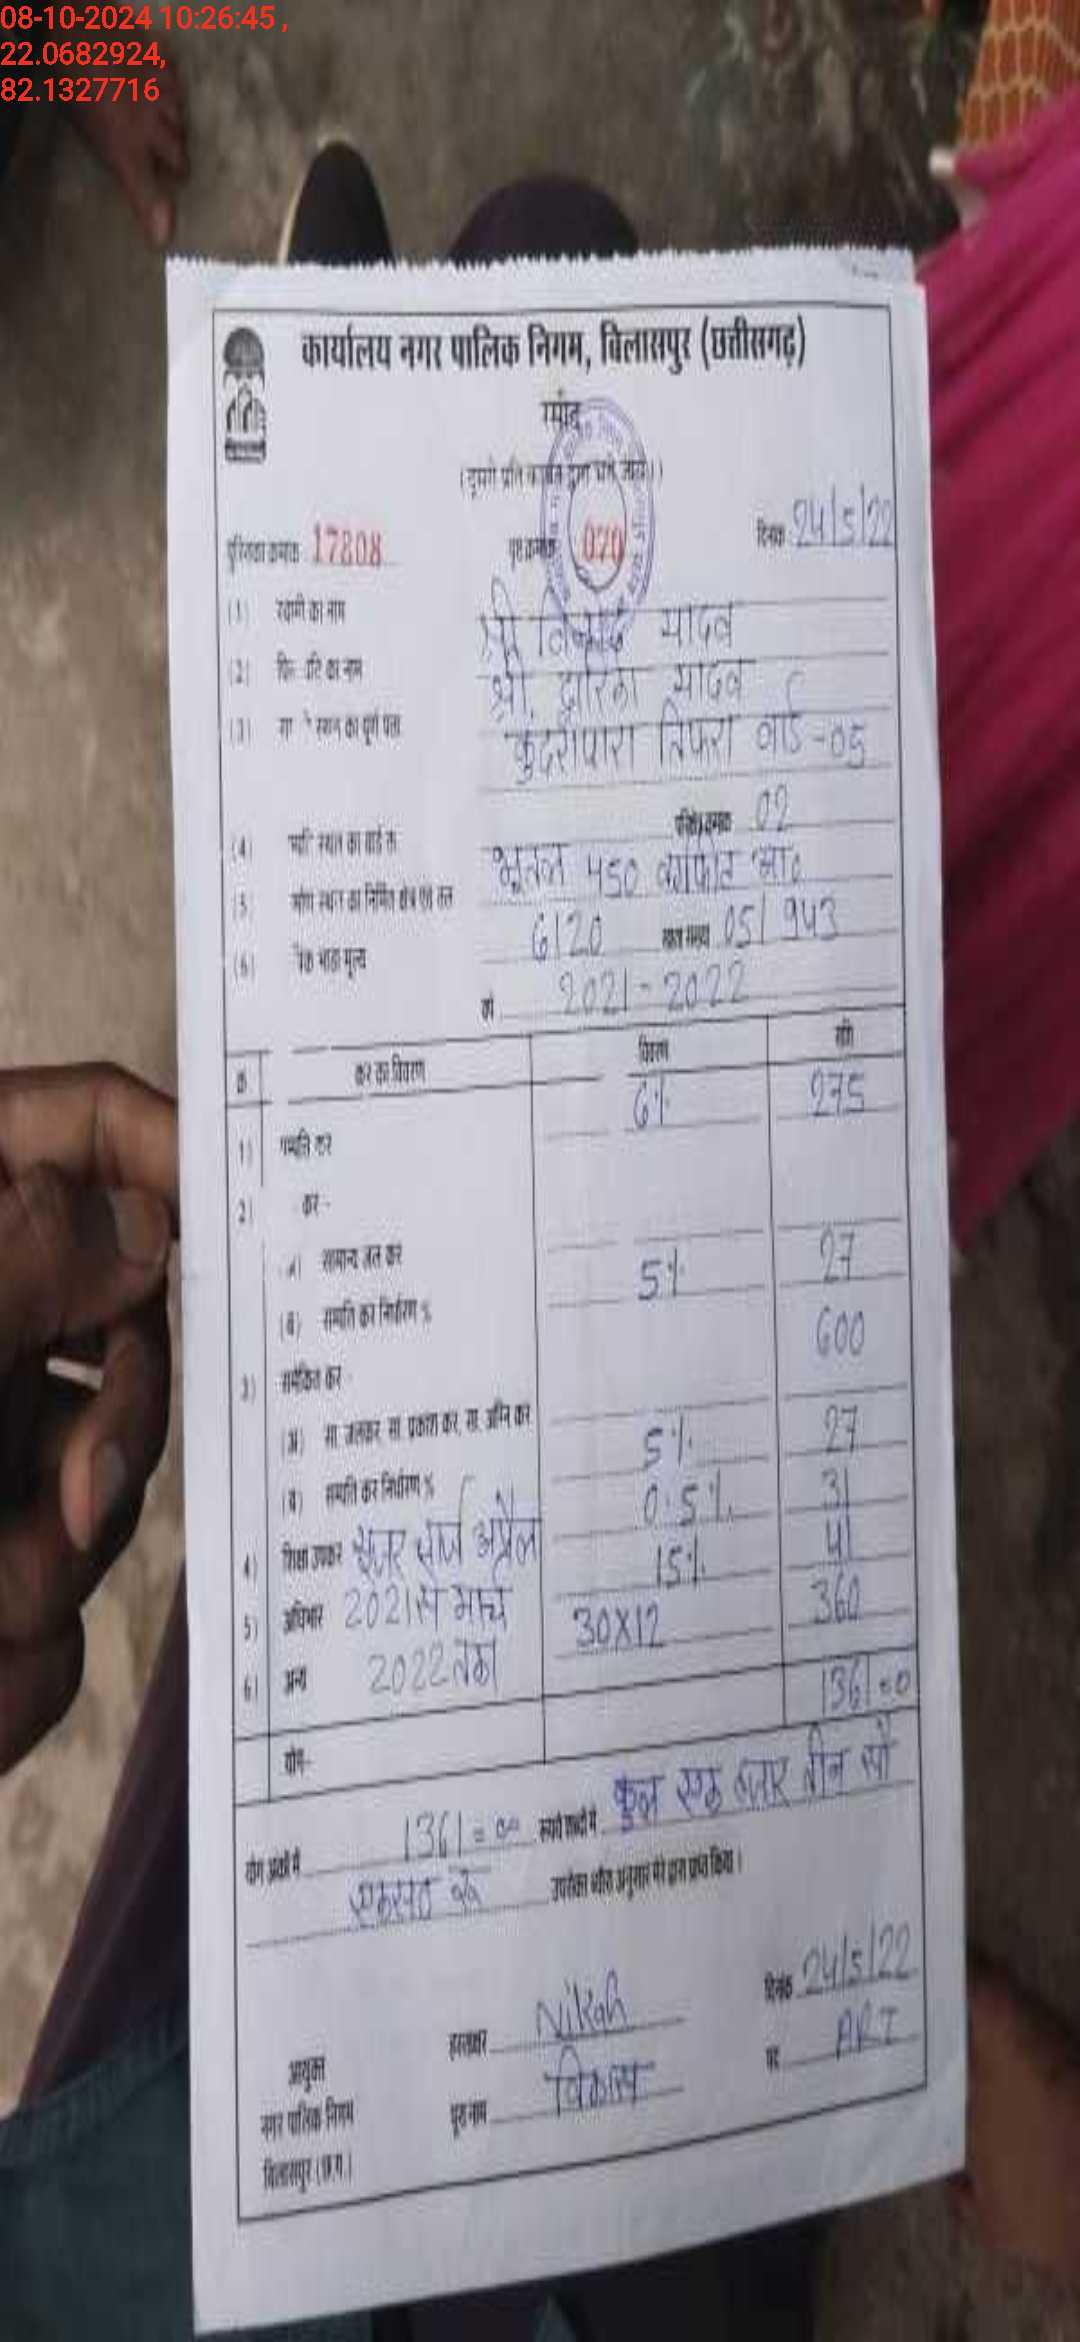 08-10-2024 10:26:45 ,
22.0682924,
82.1327716
कार्यालय नगर पालिक निगम, बिलासपुर (छत्तीसगढ़)
रसीद
पुस्तिका क्रमांक 17808 पृष्ठ क्रमांक 070 दिनांक 24/5/22
(1) स्वामी का नाम श्री यादव
(2) का नाम श्री यादव
(3) स्थान का पूर्ण पता कुंदरापारा तिफरा वार्ड-05
(4) स्थान का वार्ड क्रमांक 02
(5) स्थान का निर्मित क्षेत्र एवं तल भूतल 450 वर्गफीट आ०
(6) भाड़ा मूल्य 6120 05/943
वर्ष 2021-2022
क्र कर का विवरण विवरण राशि
1) सम्पत्ति कर 6% 275
2) कर -
सामान्य जल कर
(ब) सम्पत्ति कर निर्धारण % 5% 27
3) समेकित कर - 600
(अ) सा. जलकर, सा. प्रकाश कर, सा. अग्नि कर
(ब) सम्पत्ति कर निर्धारण % 5% 27
4) शिक्षा उपकर 0.5% 31
यूजर चार्ज अप्रैल
5) अधिभार 2021 से मार्च 15% 41
6) अन्य 2022 तक 30X12 360
योग- 1361=0
योग अंकों में 1361=00 रूपये शब्दों में कुल एक हजार तीन सौ
एकसठ रू उपरोक्त ब्यौरा अनुसार मेरे द्वारा प्राप्त किया।
दिनांक 24/5/22
हस्ताक्षर
आयुक्त पद ARI
नगर पालिक निगम पूरा नाम विकास
बिलासपुर (छ.ग.)